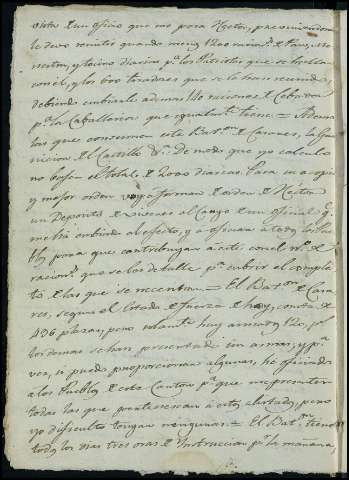 vista de un oficio que me pasa Hector, previniendome
le devo remitir quando menos 1200 racion.s de Pan, me-
nestra, y tocino diarias p.a los que se hallan
con el, y los 600 tiradores que se le han reunido,
debiendo embiarle ademas 140 raciones de Cebada
p.a la Caballeria que igualm.te tiene = Ademas
las que consumen este Bat.on de Cazadores, la Guar
nicion del Castillo &.a De modo que no calculo
no bajen el total de 2000 diarias. Para su acopio
y mejor orden voy a formar de orden de Hector
un Deposito de viveres al Cargo de un oficial q.e
me ha embiado al efecto, y a oficiar a todos los Pue
blos para que contribuyan a este con el n.o de
racion.s que se les detalle p.a cubrir el comple
to de las que se necesitan = El Bat.on de Caza
res, segun el Estado de fuerza de hoy, consta de
436 plazas, pero solam.te hay armad.s 120, p.s
los demas se han presentado sin armas, y p.a
ver si puedo proporcionar algunas, he oficiado
a los Pueblos de este Canton p.a que me presenten
todas las que pertenezcan a este alistado, pero
yo dificulto tengan ningunas = El Bat.on tiene
todos los dias tres oras de Instruccion p.r la mañana,